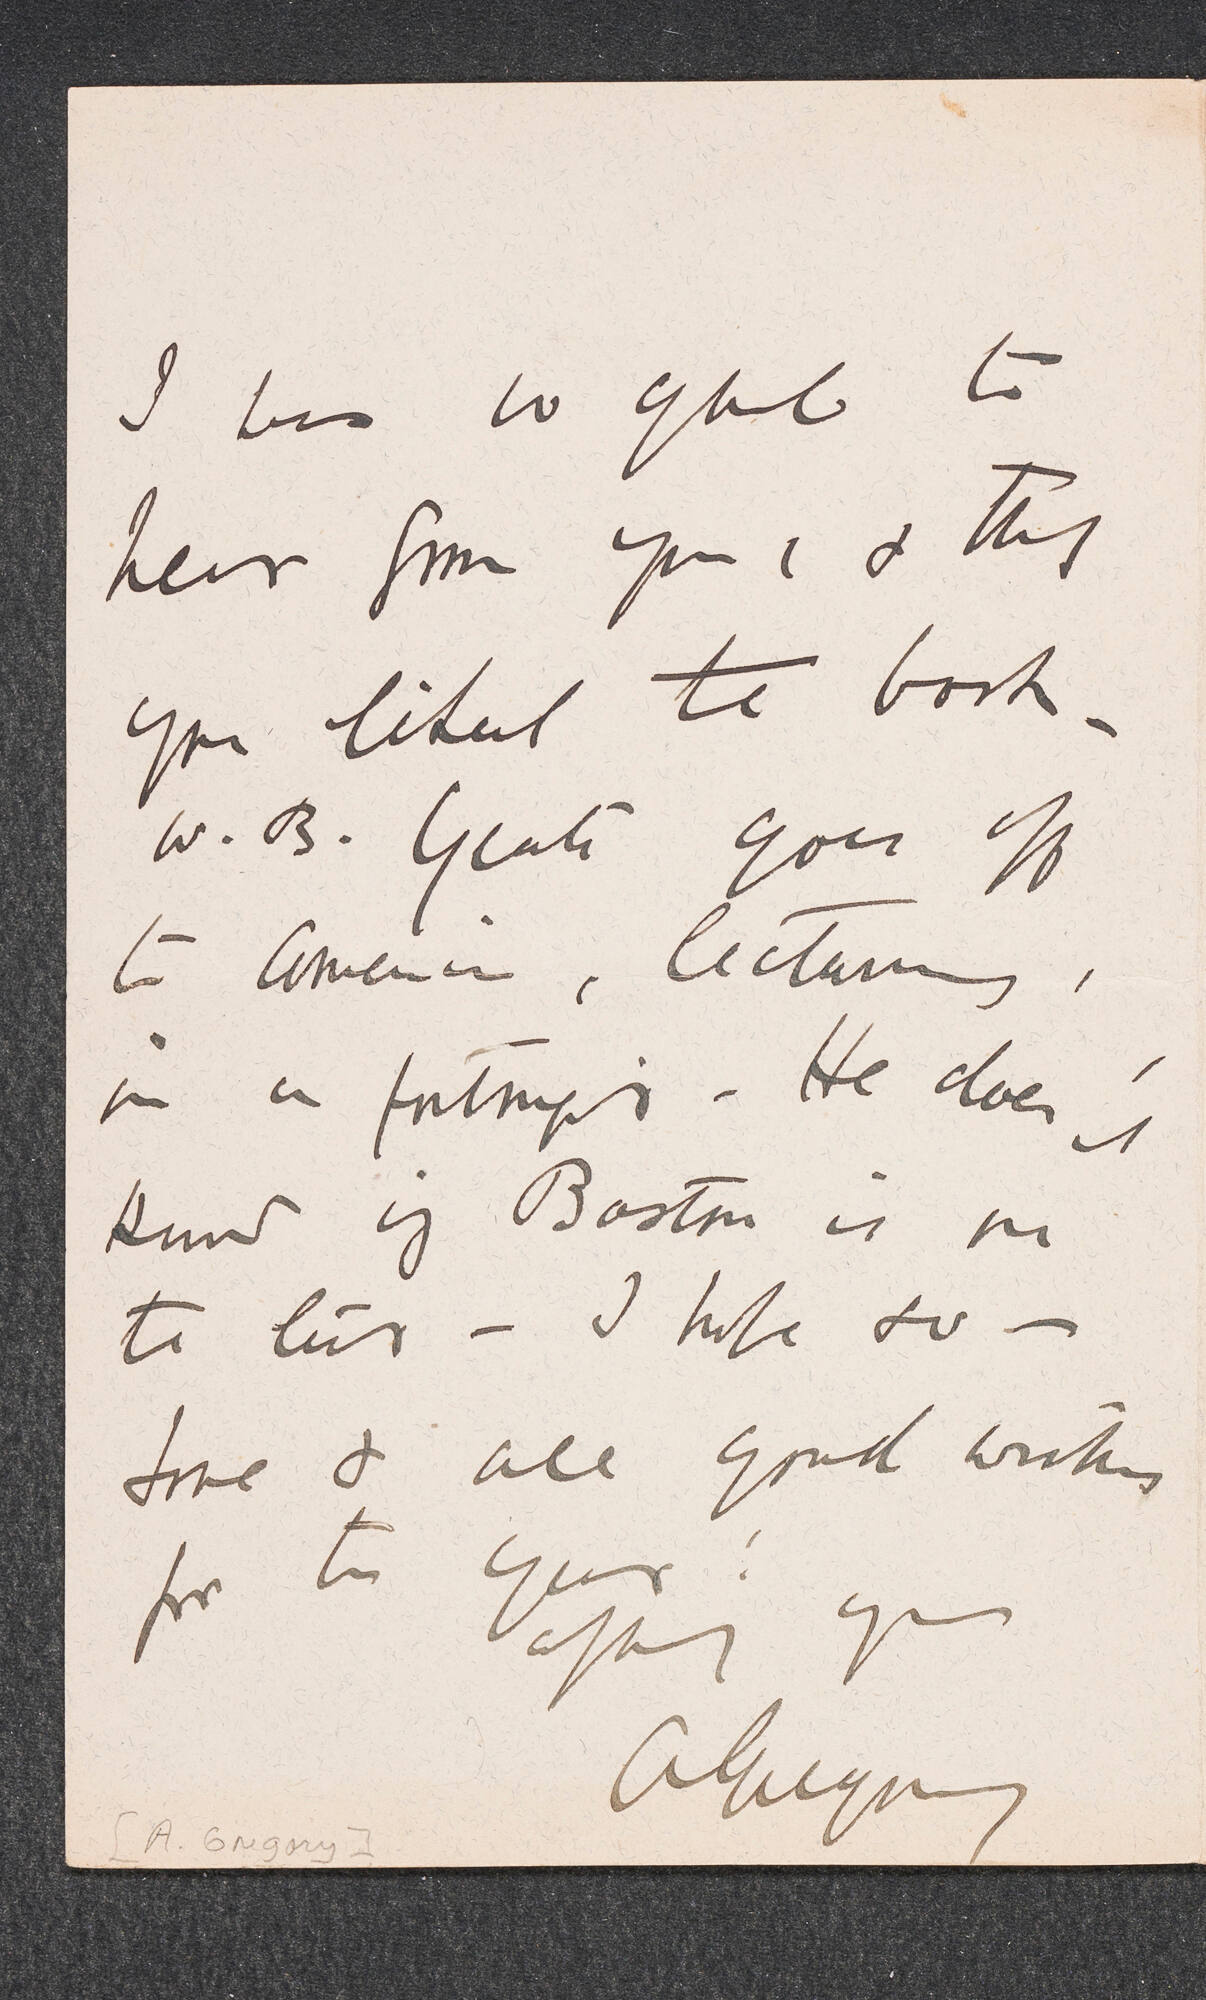 I was so glad to
hear from you, & that
you liked the book -
W. B. Yeats goes off
to America, lecturing,
in a fortnight - He doesn't
know if Boston is on
the list - I hope so -
Love & all good wishes
for the year!
affly yrs
A Gregory
[A. Gregory]